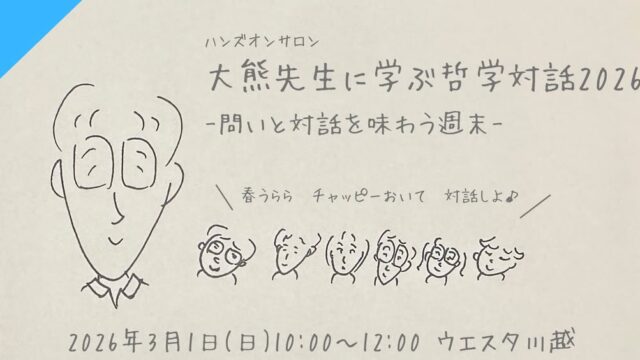 ハンズオンサロン
大熊先生に学ぶ哲学対話2026
-問いと対話を味わう週末-
春うらら チャッピーおいて 対話しよ♪
2026年3月1日(日)10:00〜12:00 ウエスタ川越